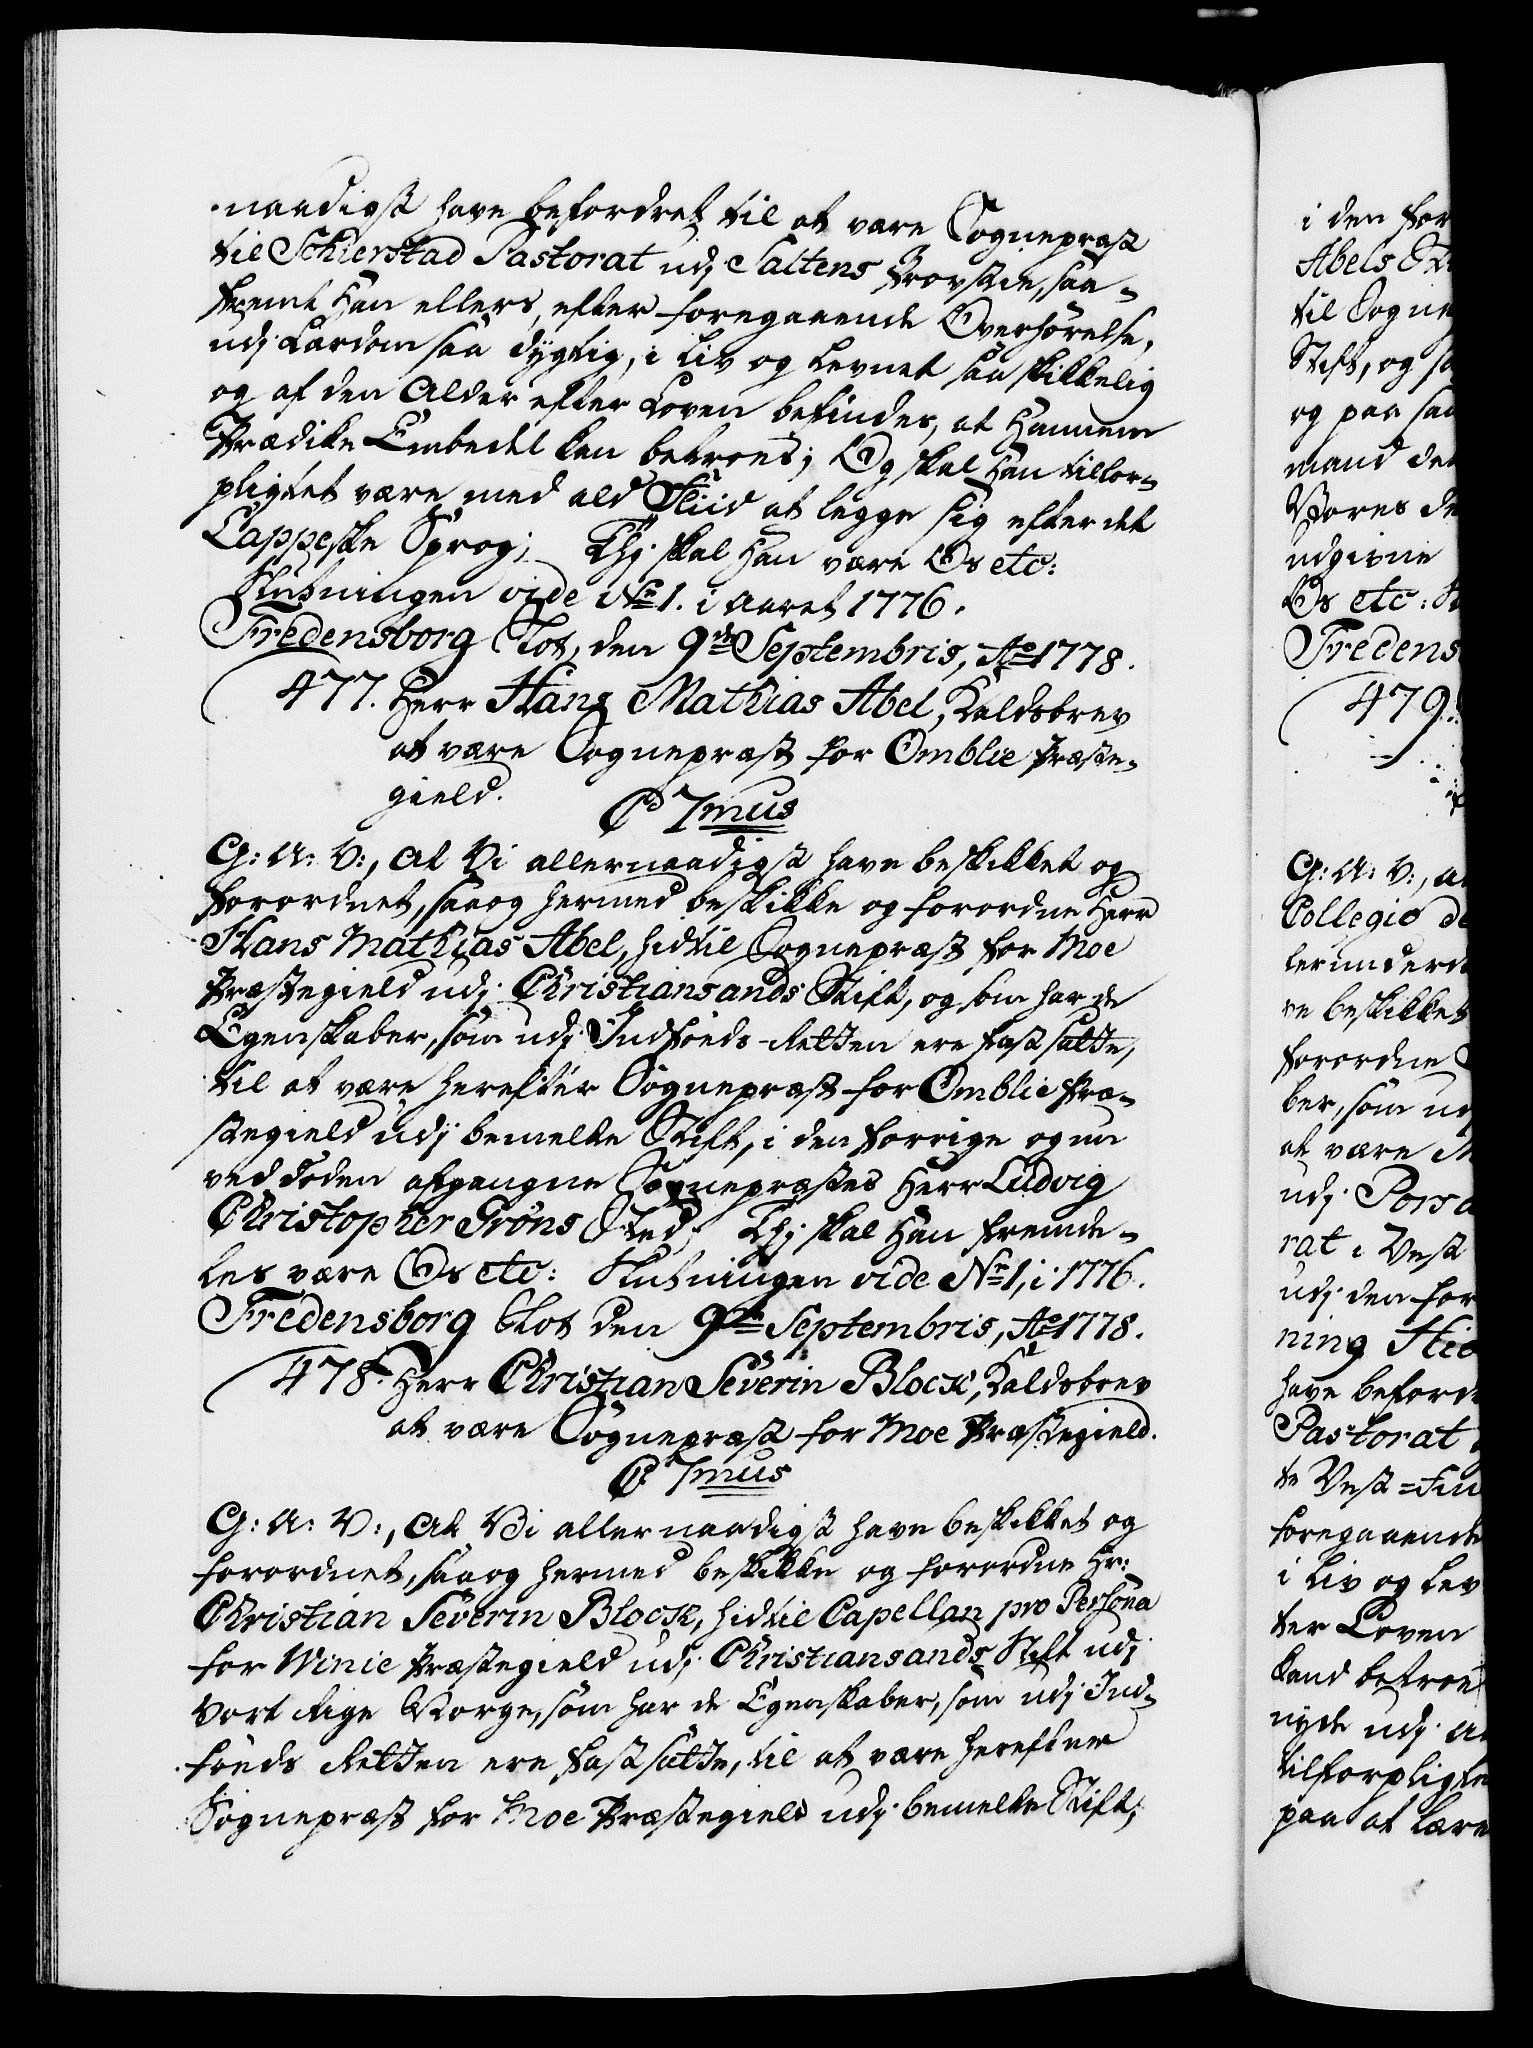 naadigst have befordret til at være Sognepræst
til Schierstad Pastorat udj Saltens Provstie, saa-
fremt Han ellers, efter foregaaende Overhørelse,
udj Lærdom saa dygtig, i Liv og Levnet saa skikkelig
og af den Alder efter Loven befindes, at Hannem
Prædike Embedet kan betroes; Og skal Han tilfor-
pligtet være med ald Fliid at legge sig efter det
Lappeske Sprog; Thj skal Han være Os etc:
Slutningen vide No 1. i Aaret 1776.
Fredensborg Slot, den 9de Septembris, Ao 1778.
477. Herr Hans Mathias Abel, Kaldsbrev
at være Sognepræst for Omblie Præste-
gield.
C 7mus
G: A: V:, At Vi allernaadigst have beskikket og
forordnet, saa og hermed beskikke og forordne Herr
Hans Mathias Abel, hidtil Sognepræst for Moe
Præstegield udj Christiansands Stift, og som har de
Egenskaber, som udj Indføds-Retten ere fastsatte,
til at være herefter Sognepræst for Omblie Præ-
stegield udj bemelte Stift, i den forrige og nu
ved Døden afgangne Sognepræstes Herr Ludvig
Christopher Grøns Sted; Thj skal Han fremde-
les være Os etc: Slutningen vide No 1, i 1776.
Fredensborg Slot den 9de Septembris, Ao 1778.
478. Herr Christian Severin Block, Kaldsbrev
at være Sognepræst for Moe Præstegield.
C 7mus
G: A: V:, At Vi allernaadigst have beskikket og
forordnet, saa og hermed beskikke og forordne Hr:
Christian Severin Block, hidtil Capellan pro Persona
for Winie Præstegield udj Christiansands Stift udj
Vort Rige Norge, som har de Egenskaber, som udj Ind-
føds Retten ere fastsatte, til at være herefter
Sognepræst for Moe Præstegield udj bemelte Stift,
i den for
Abels
til Sogne
Stift, og sa
og paa saa
mand det
Vores de
udgivne
Os etc:
Fredens
479.
G: A: V:, at
Collegio de
lerunderd
ve beskikket
forordne
ber, som udj
at være M
udj Porsa
rat i Vest
udj den for
ning
have beford
Pastorat
te Vest-Fin
foregaaende
i Liv og Lev
ter Loven
kand betroe
nyde udj
tilforpligte
paa at lære